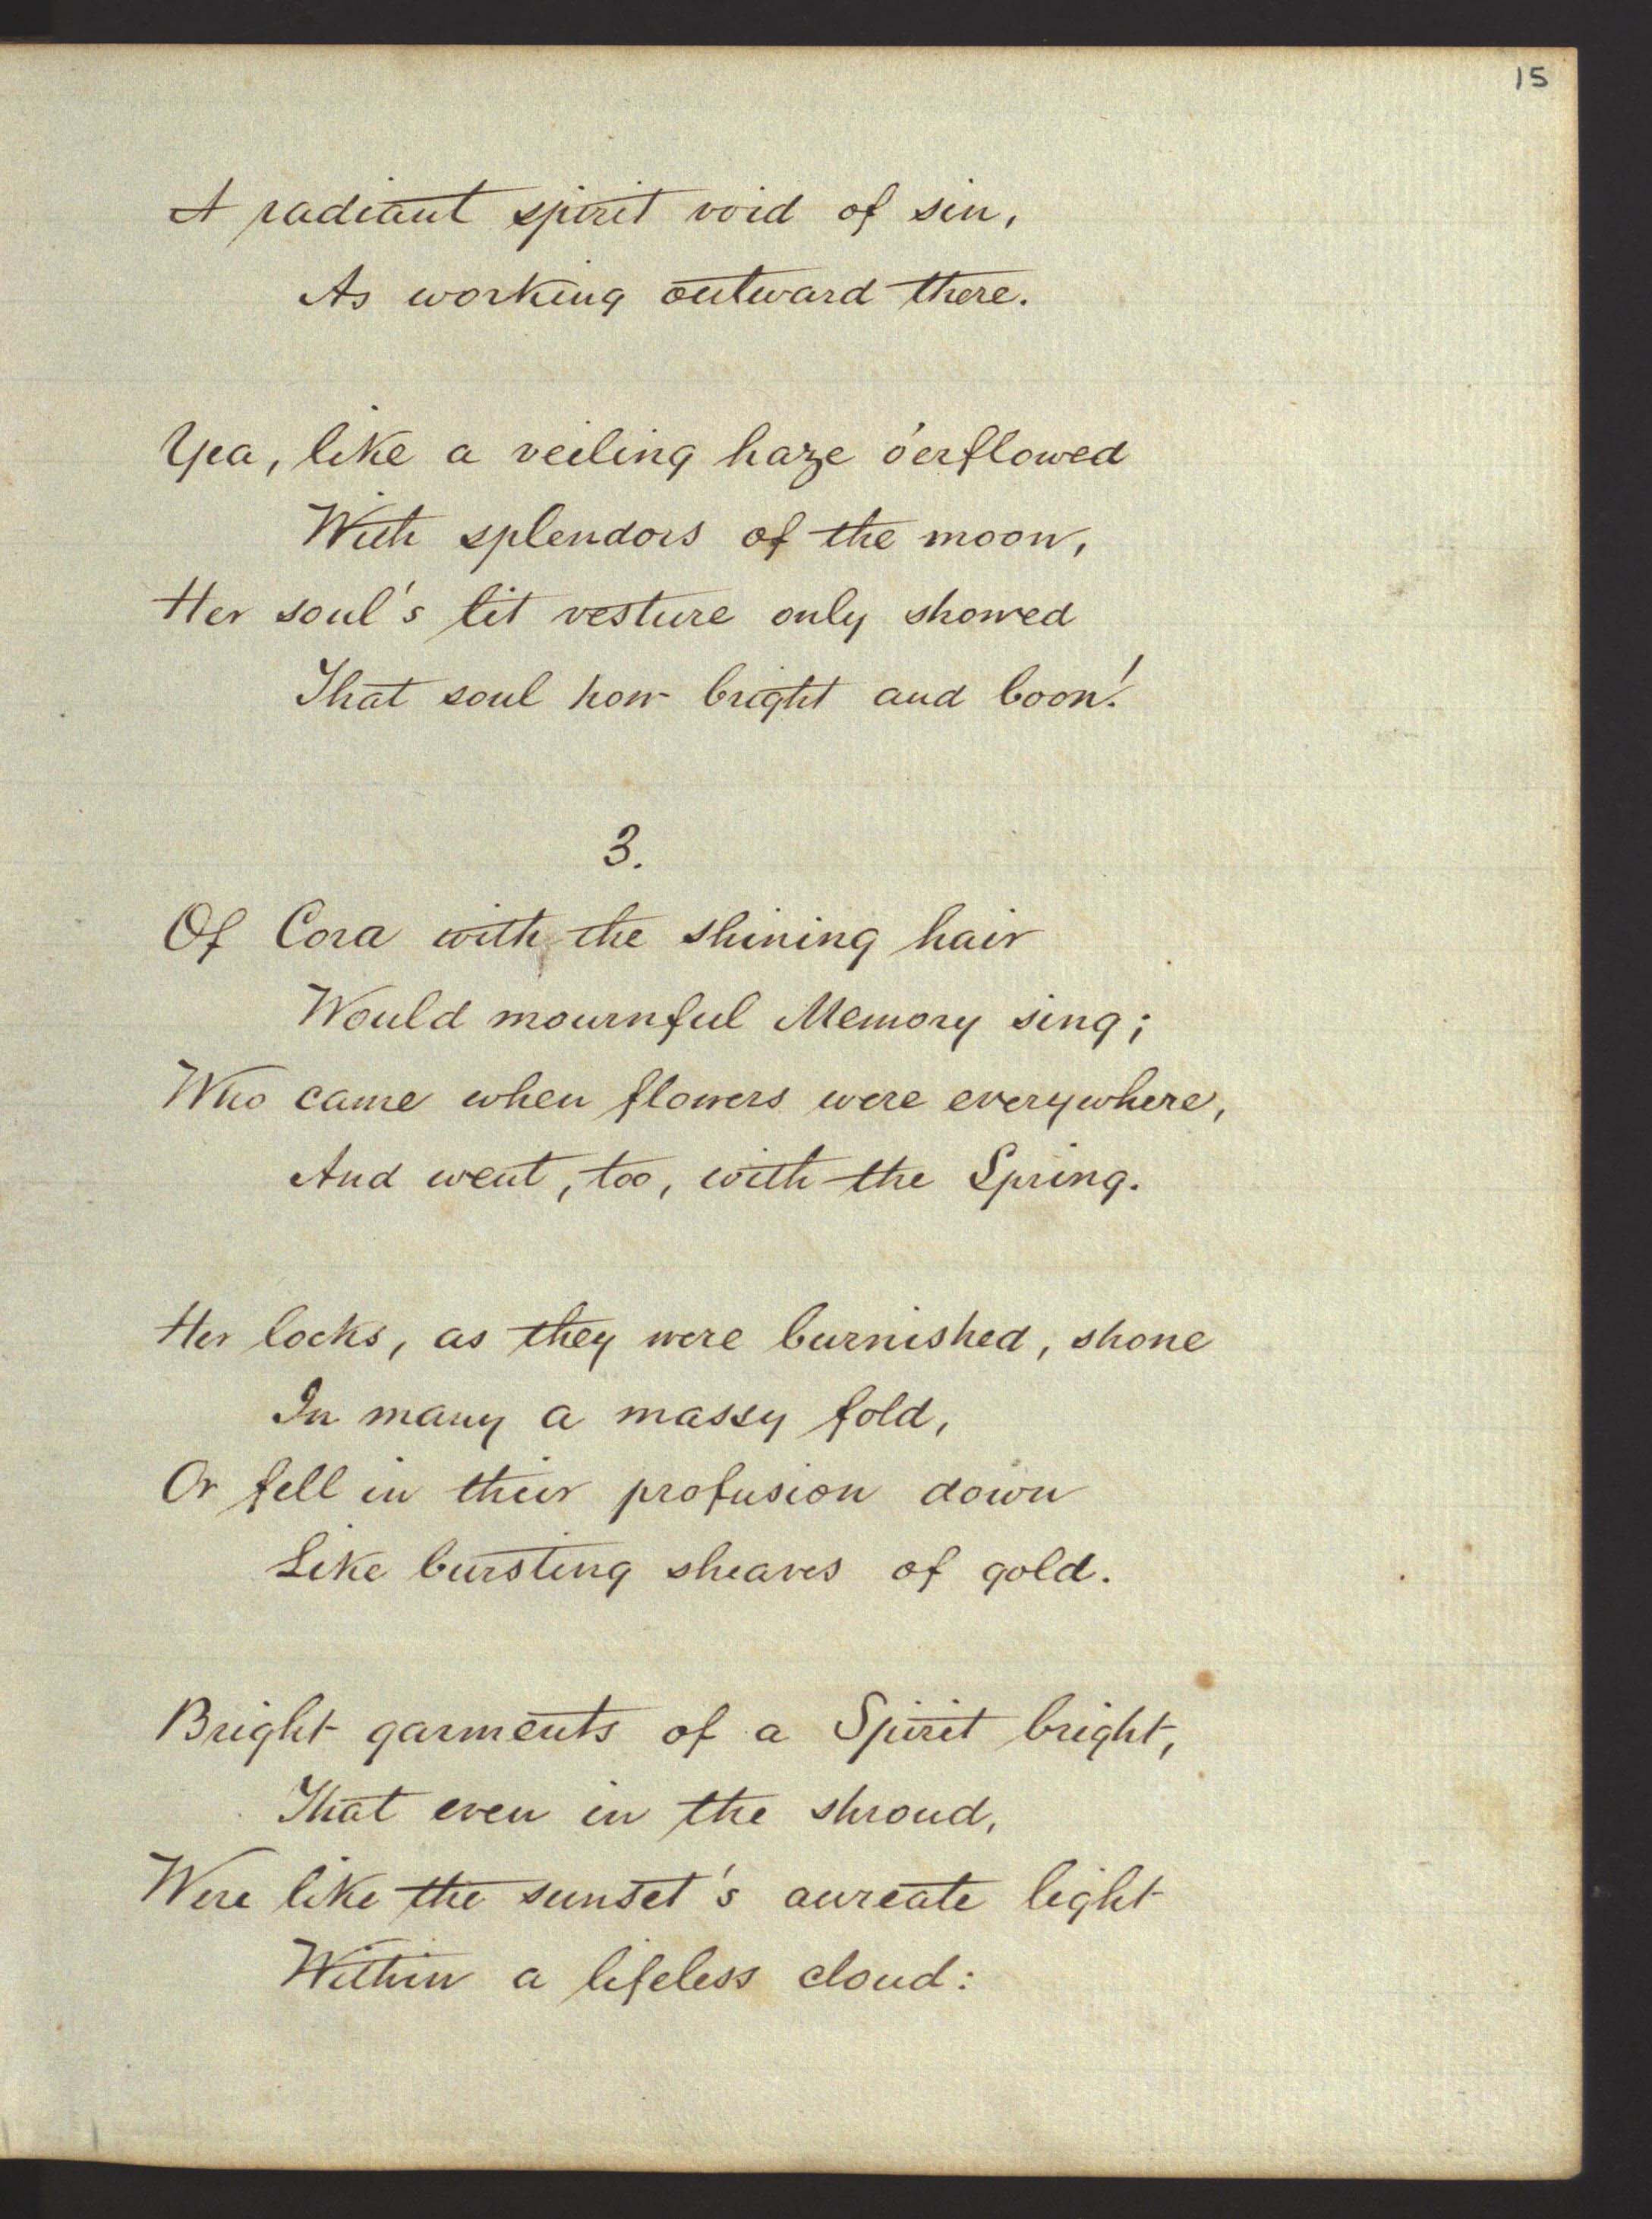 15
A radiant spirit void of sin,
As working outward there.
Yea, like a veiling haze o'erflowed
With splendors of the moon,
Her soul's lit vesture only showed
That soul how bright and boon!
3.
Of Cora with the shining hair
Would mournful Memory sing;
Who came when flowers were everywhere,
And went, too, with the Spring.
Her locks, as they were burnished, shone
In many a massy fold,
Or fell in their profusion down
Like bursting sheaves of gold.
Bright garments of a Spirit bright,
That even in the shroud,
Were like the sunset's aureate light
Within a lifeless cloud: